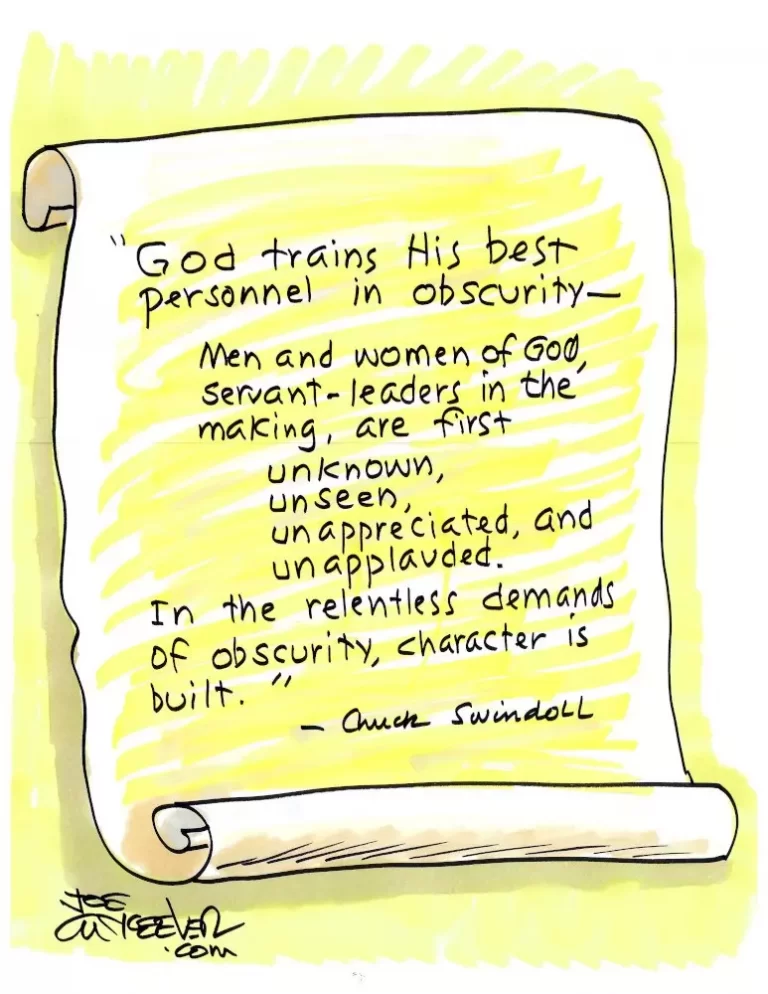 "God trains His best
personnel in obscurity—
Men and women of God,
servant-leaders in the
making, are first
unknown,
unseen,
unappreciated, and
unapplauded.
In the relentless demands
of obscurity, character is
built."
- Chuck Swindoll
JOE
McKEEVER
.com